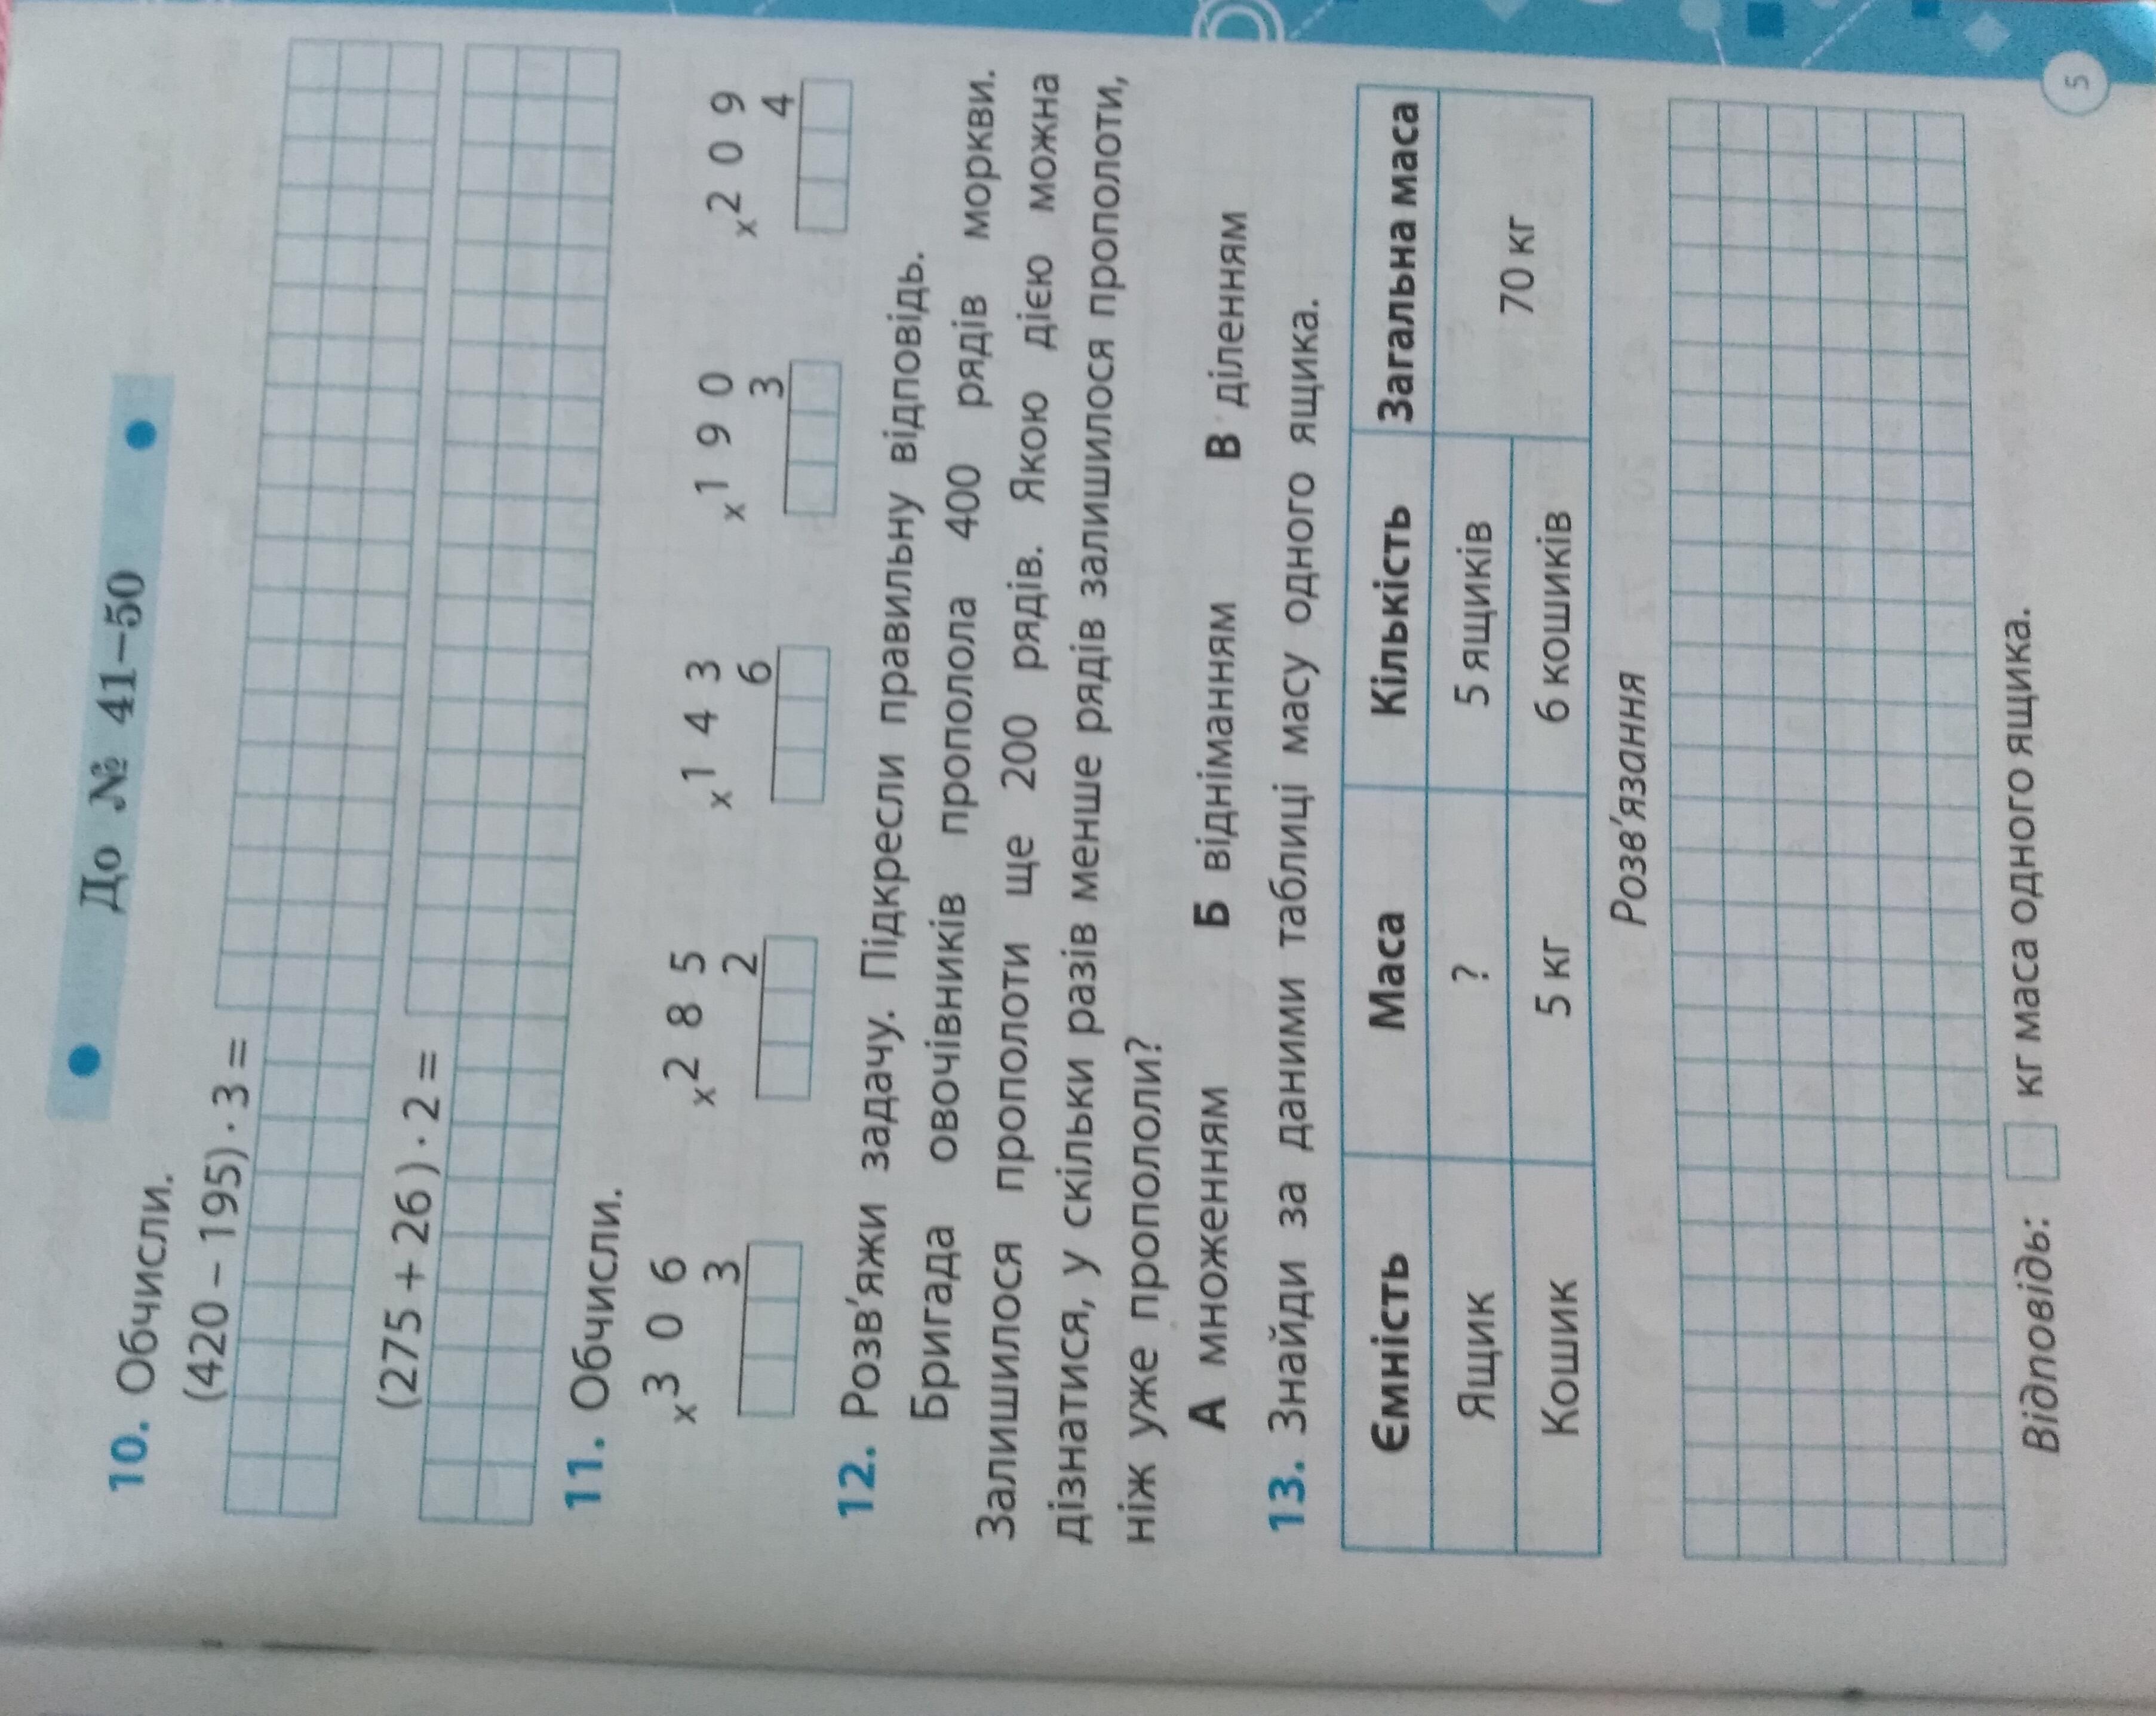 До № 41–50
10. Обчисли.
(420 – 195) · 3 =
(275 + 26) · 2 =
11. Обчисли.
x 3 0 6 x 2 8 5 x 1 4 3 x 1 9 0 x 2 0 9
3 2 6 3 4
12. Розв'яжи задачу. Підкресли правильну відповідь.
Бригада овочівників прополола 400 рядів моркви.
Залишилося прополоти ще 200 рядів. Якою дією можна
дізнатися, у скільки разів менше рядів залишилося прополоти,
ніж уже пропололи?
А множенням Б відніманням В діленням
13. Знайди за даними таблиці масу одного ящика.
Ємність Маса Кількість Загальна маса
Ящик ? 5 ящиків
70 кг
Кошик 5 кг 6 кошиків
Розв'язання
Відповідь: кг маса одного ящика.
5